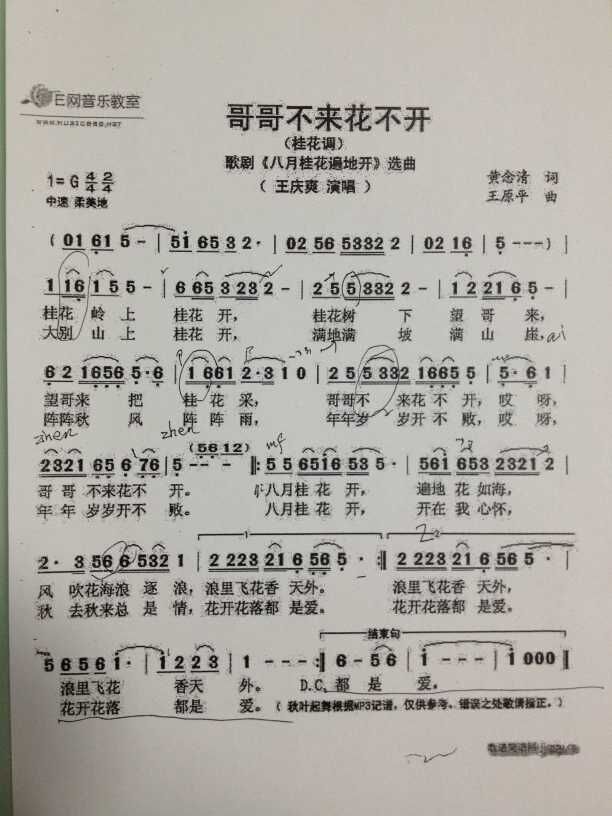 E网音乐教室
哥哥不来花不开
(桂花调)
歌剧《八月桂花遍地开》选曲
(王庆爽 演唱)
1=G 4/4 2/4
中速 柔美地
黄念清 词
王原平 曲
(01 61 5 - | 51 65 3 2· | 02 56 5332 2 | 02 16 5 | 5 - - -) |
1 16 1 5 5 - | 6 65 3 232 2 | 2 5 5 332 2 - | 1 2 2 21 6 5 - |
桂花 岭 上 桂花 开, 桂花树 下 望 哥 来,
大别 山 上 桂花 开, 满地满 坡 满 山 崖, ai
6 2 1656 5·6 | 1 661 2·3 1 0 | 2 5 5 332 1 665 5 | 5·6 1 |
望哥来 把 桂 花 采, 哥哥不 来花 不 开, 哎 呀,
阵阵秋 风 阵 阵 雨, 年年岁 岁开 不 败, 哎 呀,
zhen zhen mf
2321 65 6 76 | 5 - - (56 12) ‖: 5 5 6516 53 5· | 561 653 2321 2 |
哥 哥 不来花不 开。 八月桂 花 开, 遍地 花 如海,
年 年 岁岁开不 败。 八月桂 花 开, 开在 我 心怀,
2· 3 56 6 532 1 | 2 223 21 6 56 5· :‖ 2 223 21 6 56 5 |
风 吹花海浪 逐 浪, 浪里飞花香 天外。 浪里飞花香 天外,
秋 去秋来总 是 情, 花开花落都 是爱。 花开花落都 是爱。
结束句
5 65 65 1· | 1 2 2 3 | 1 - - :‖ 6 - 5 6 | 1 - - - | 1 000 ‖
浪里飞花 香天 外。 D.C. 都 是 爱。
花开花落 都是 爱。(秋叶起舞根据MP3记谱, 仅供参考、错误之处敬请指正。)